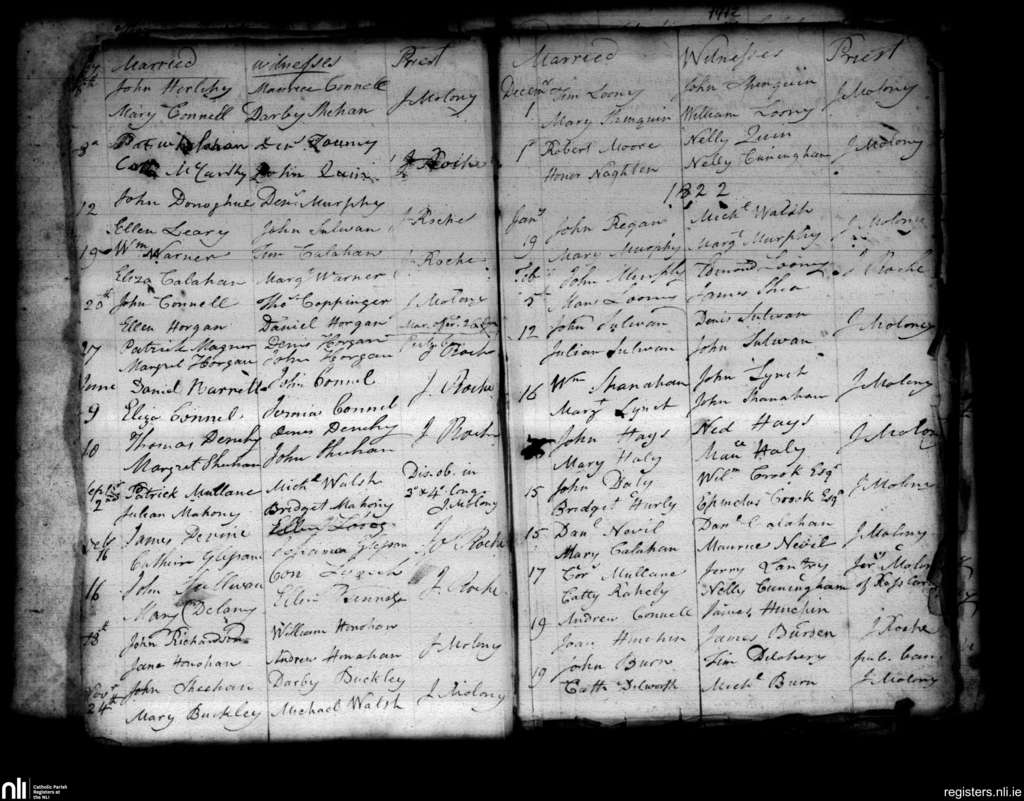 Married witnesses Priest
John Herlihy Maurice Connell
Mary Connell Darby Shehan J Molony
Cath McCarthy John Quin J Roche
12 John Donoghue Denis Murphy
Ellen Leary John Sulwan J Roche
19 Wm Warner Tim Calahan
Eliza Calahan Margt Warner J Roche
John Connell Thos Coppinger J Molony
Ellen Horgan Daniel Horgan
27 Patrick Magner Denis Horgan
Margret Horgan John Horgan J Roche
June Daniel Barrett John Connel J. Roche
9 Eliza Connel Connel
10 Thomas Denehy Denis Denehy J Roche
Margret Shehan John Shehan
Sepr Patrick Mullane Michl Walsh Dis. ob. in
2 Julian Mahony Bridget Mahony 3d & 4th Cong J Molony
James Devine
16 Gleson J Roche
16 John Sullivan Con Lynch J. Roche
Mary Delany Ellen
18th John Richardson William Honohan J Molony
Jane Honohan Andrew Honahan
Novr John Sheehan Darby Buckley J Molony
24th Mary Buckley Michael Walsh
Married Witnesses Priest
Decemr Tim Loony John Shinquin J Molony
1 Mary Shinquin William Loony
1st Robert Moore Nelly Quin J Molony
Honor Naghten Nelly Cuningham
1822
Jany John Regan Michl Walsh J Molony
19 Mary Murphy Margt Murphy
Feby John Murphy Edmond Loony J Roche
5th Loony James Shea
12 John Sulwan Denis Sulwan J Molony
Julian Sulwan John Sulwan
16 Wm Shanahan John Lynch J Molony
Margt Lynch John Shanahan
John Hays Ned Hays J Molony
Mary Haly Mauce Haly
15 John Daly Wilm Crook Esqr J Molony
Bridget Hurly Crook Esqr
15 Danl Nevil Danl Calahan J Molony
Mary Calahan Maurice Nevil
17 Cors Mullane Jerry
Catty Rahely Nelly Cuningham
19 Andrew Connell James Hinchin J Roche
Joan Hinchin James Bursen
19 John Burn Tim pub. ban
Cath Dilworth Michl Burn J Molony
nli Catholic Parish Registers at the NLI
registers.nli.ie